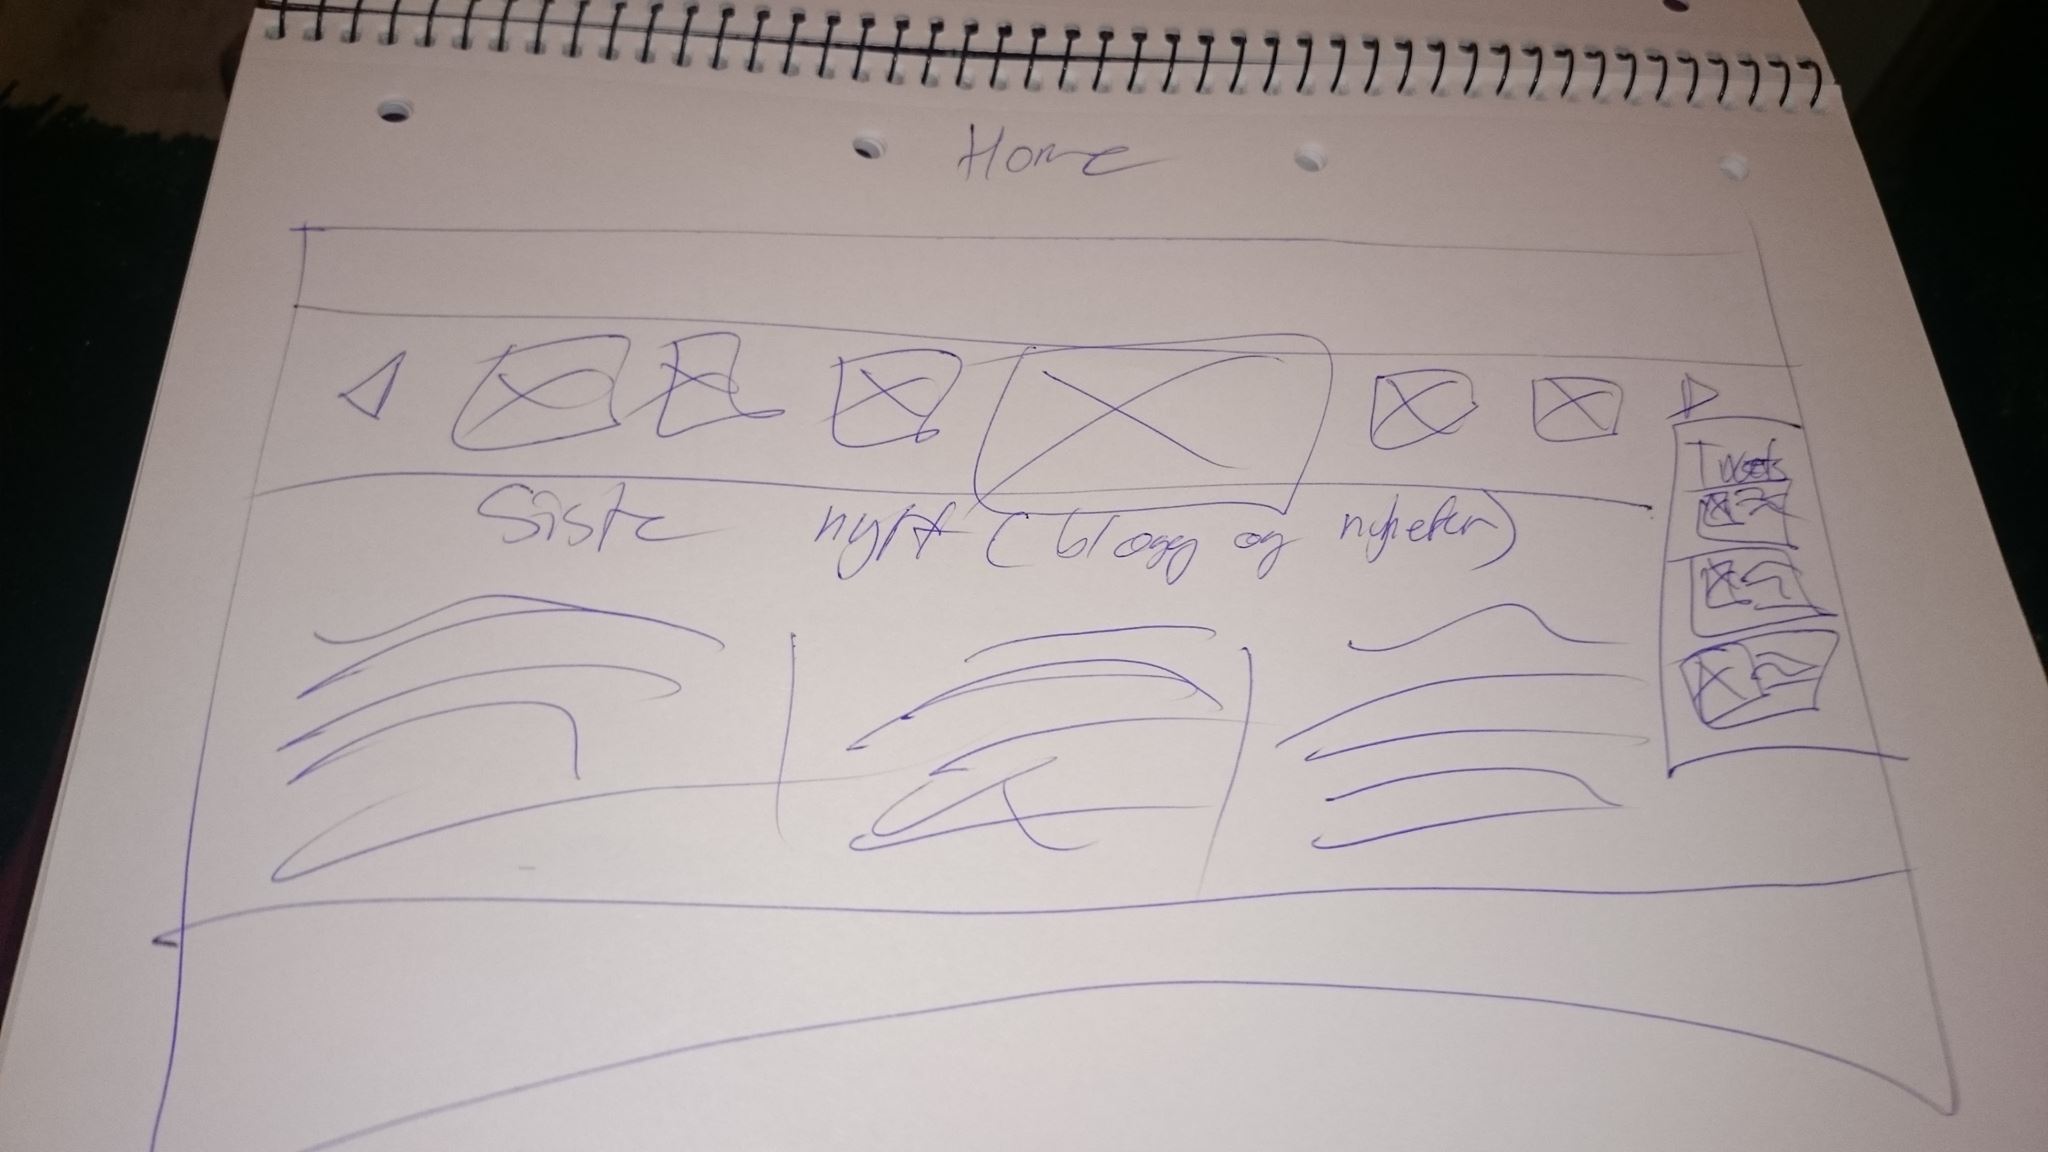 Home
Siste nytt (blogg og nyheter)
Tweets